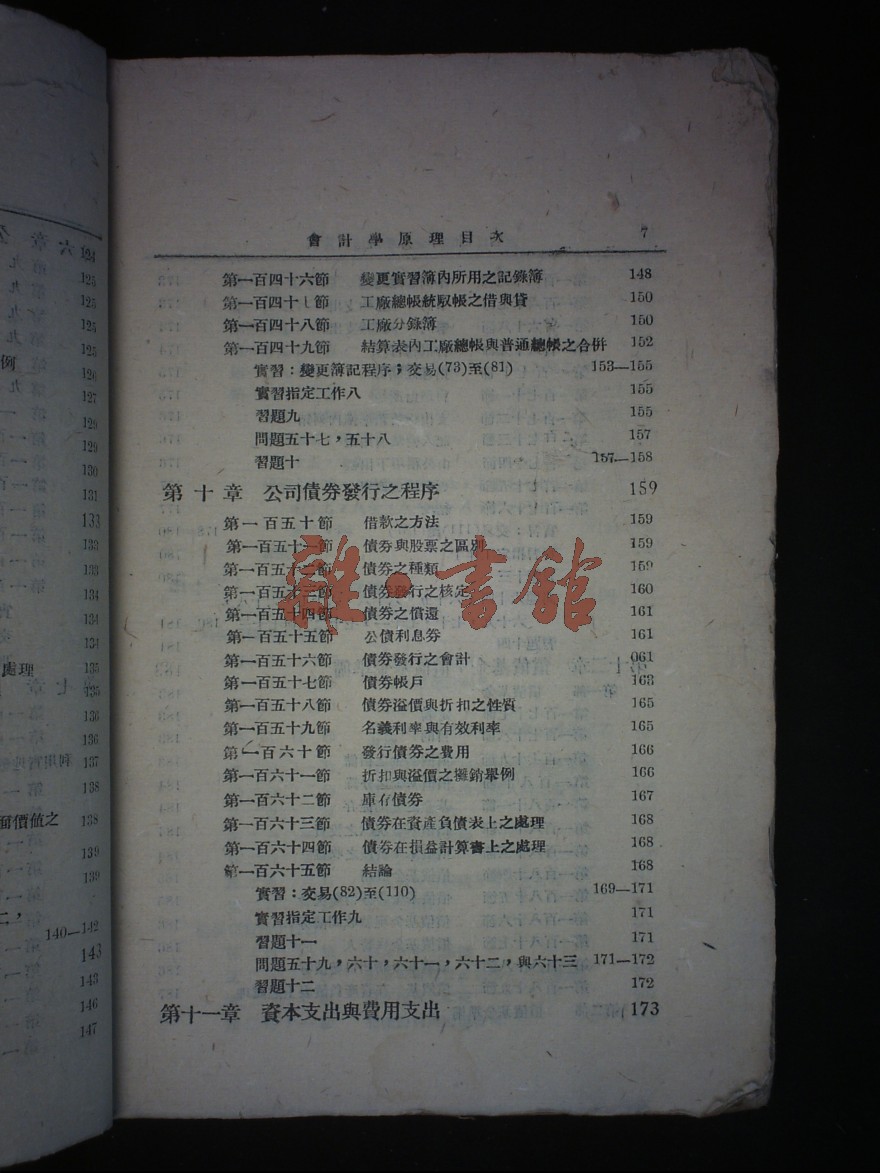 會計學原理目次 7
第一百四十六節 變更實習簿內所用之記錄簿 148
第一百四十七節 工廠總帳統馭帳之借與貸 150
第一百四十八節 工廠分錄簿 150
第一百四十九節 結算表內工廠總帳與普通總帳之合併 152
實習：變更簿記程序；交易(73)至(81) 153—155
實習指定工作八 155
習題九 155
問題五十七，五十八 157
習題十 157—158
第十章 公司債券發行之程序 159
第一百五十節 借款之方法 159
第一百五十一節 債券與股票之區別 159
第一百五十二節 債券之種類 159
第一百五十三節 債券發行之核定 160
第一百五十四節 債券之償還 161
第一百五十五節 公債利息券 161
第一百五十六節 債券發行之會計 061
第一百五十七節 債券帳戶 163
第一百五十八節 債券溢價與折扣之性質 165
第一百五十九節 名義利率與有效利率 165
第一百六十節 發行債券之費用 166
第一百六十一節 折扣與溢價之攤銷舉例 166
第一百六十二節 庫存債券 167
第一百六十三節 債券在資產負債表上之處理 168
第一百六十四節 債券在損益計算書上之處理 168
第一百六十五節 結論 168
實習：交易(82)至(110) 169—171
實習指定工作九 171
習題十一 171
問題五十九，六十，六十一，六十二，與六十三 171—172
習題十二 172
第十一章 資本支出與費用支出 173
雜·書館
124
125
124
125
例 126
127
129
129
130
131
133
133
133
134
134
134
處理 135
135
136
136
137
138
面價值之 138
139
139
二，
140—142
143
143
146
147